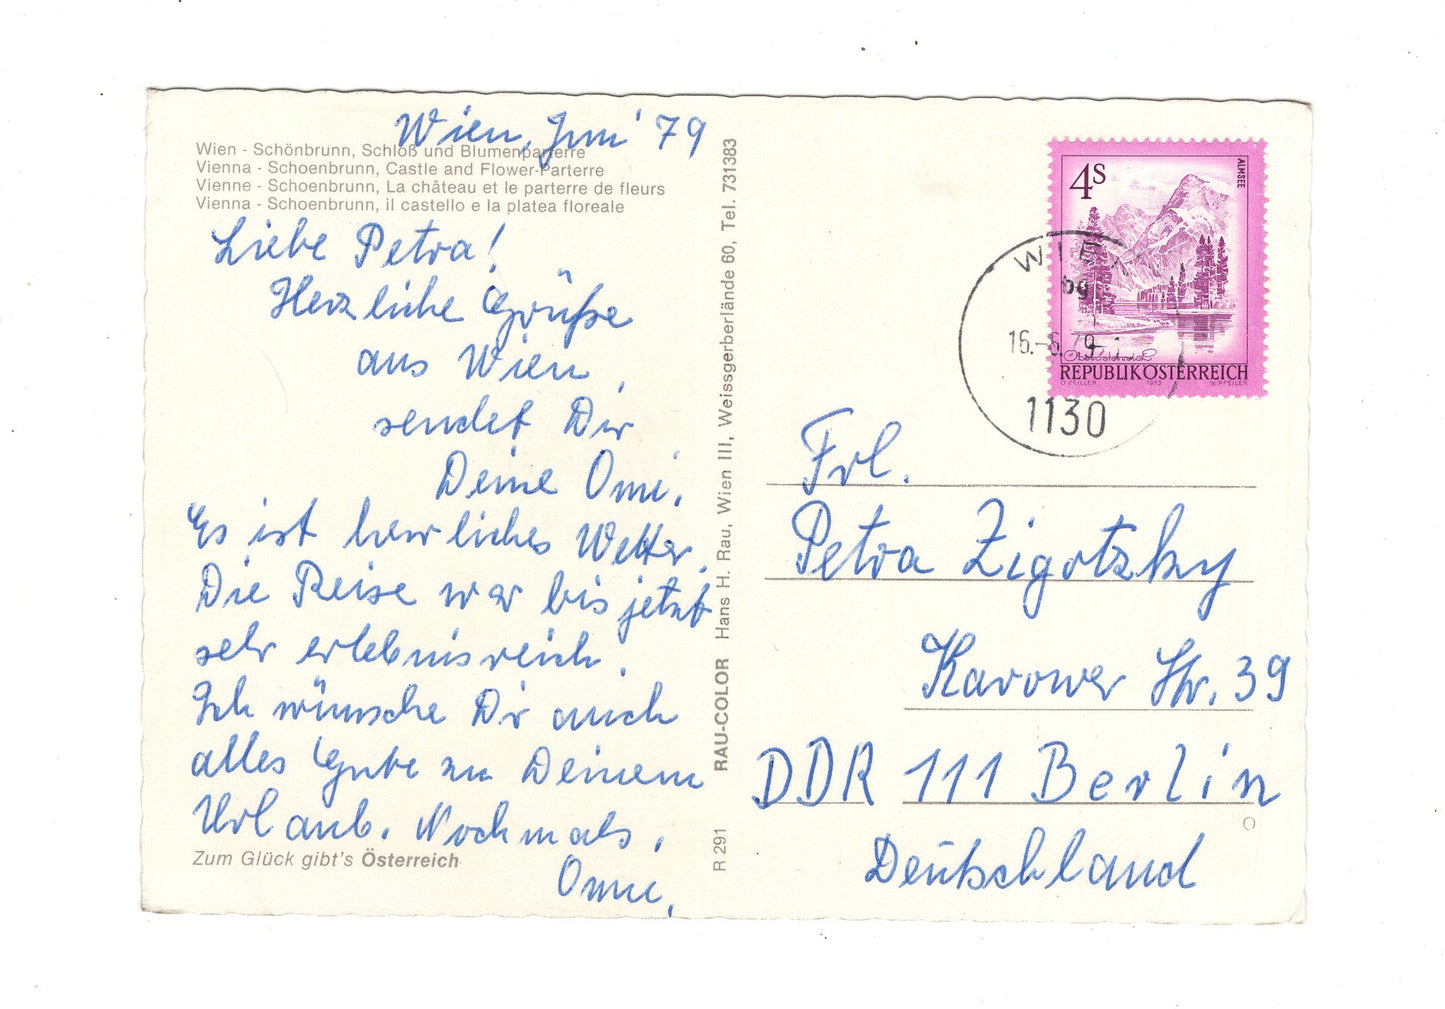 Wien, Juni '79
Wien - Schönbrunn, Schloß und Blumenparterre
Vienna - Schoenbrunn, Castle and Flower-Parterre
Vienne - Schoenbrunn, La château et le parterre de fleurs
Vienna - Schoenbrunn, il castello e la platea floreale
Liebe Petra!
Herzliche Grüße
aus Wien,
sendet Dir
Deine Omi.
Es ist herrliches Wetter.
Die Reise war bis jetzt
sehr erlebnisreich.
Ich wünsche Dir auch
alles Gute zu Deinem
Urlaub. Nochmals,
Omi,
Zum Glück gibt's Österreich
R 291 RAU-COLOR Hans H. Rau, Wien III, Weissgerberlände 60, Tel. 731383
4S
ALMSEE
Oberösterreich
REPUBLIK ÖSTERREICH
O. ZEILLER 1973 W. PFEILER
WIEN
bg
16.-6.79
1130
Frl.
Petra Zigotzky
Karower Str. 39
DDR 111 Berlin
Deutschland